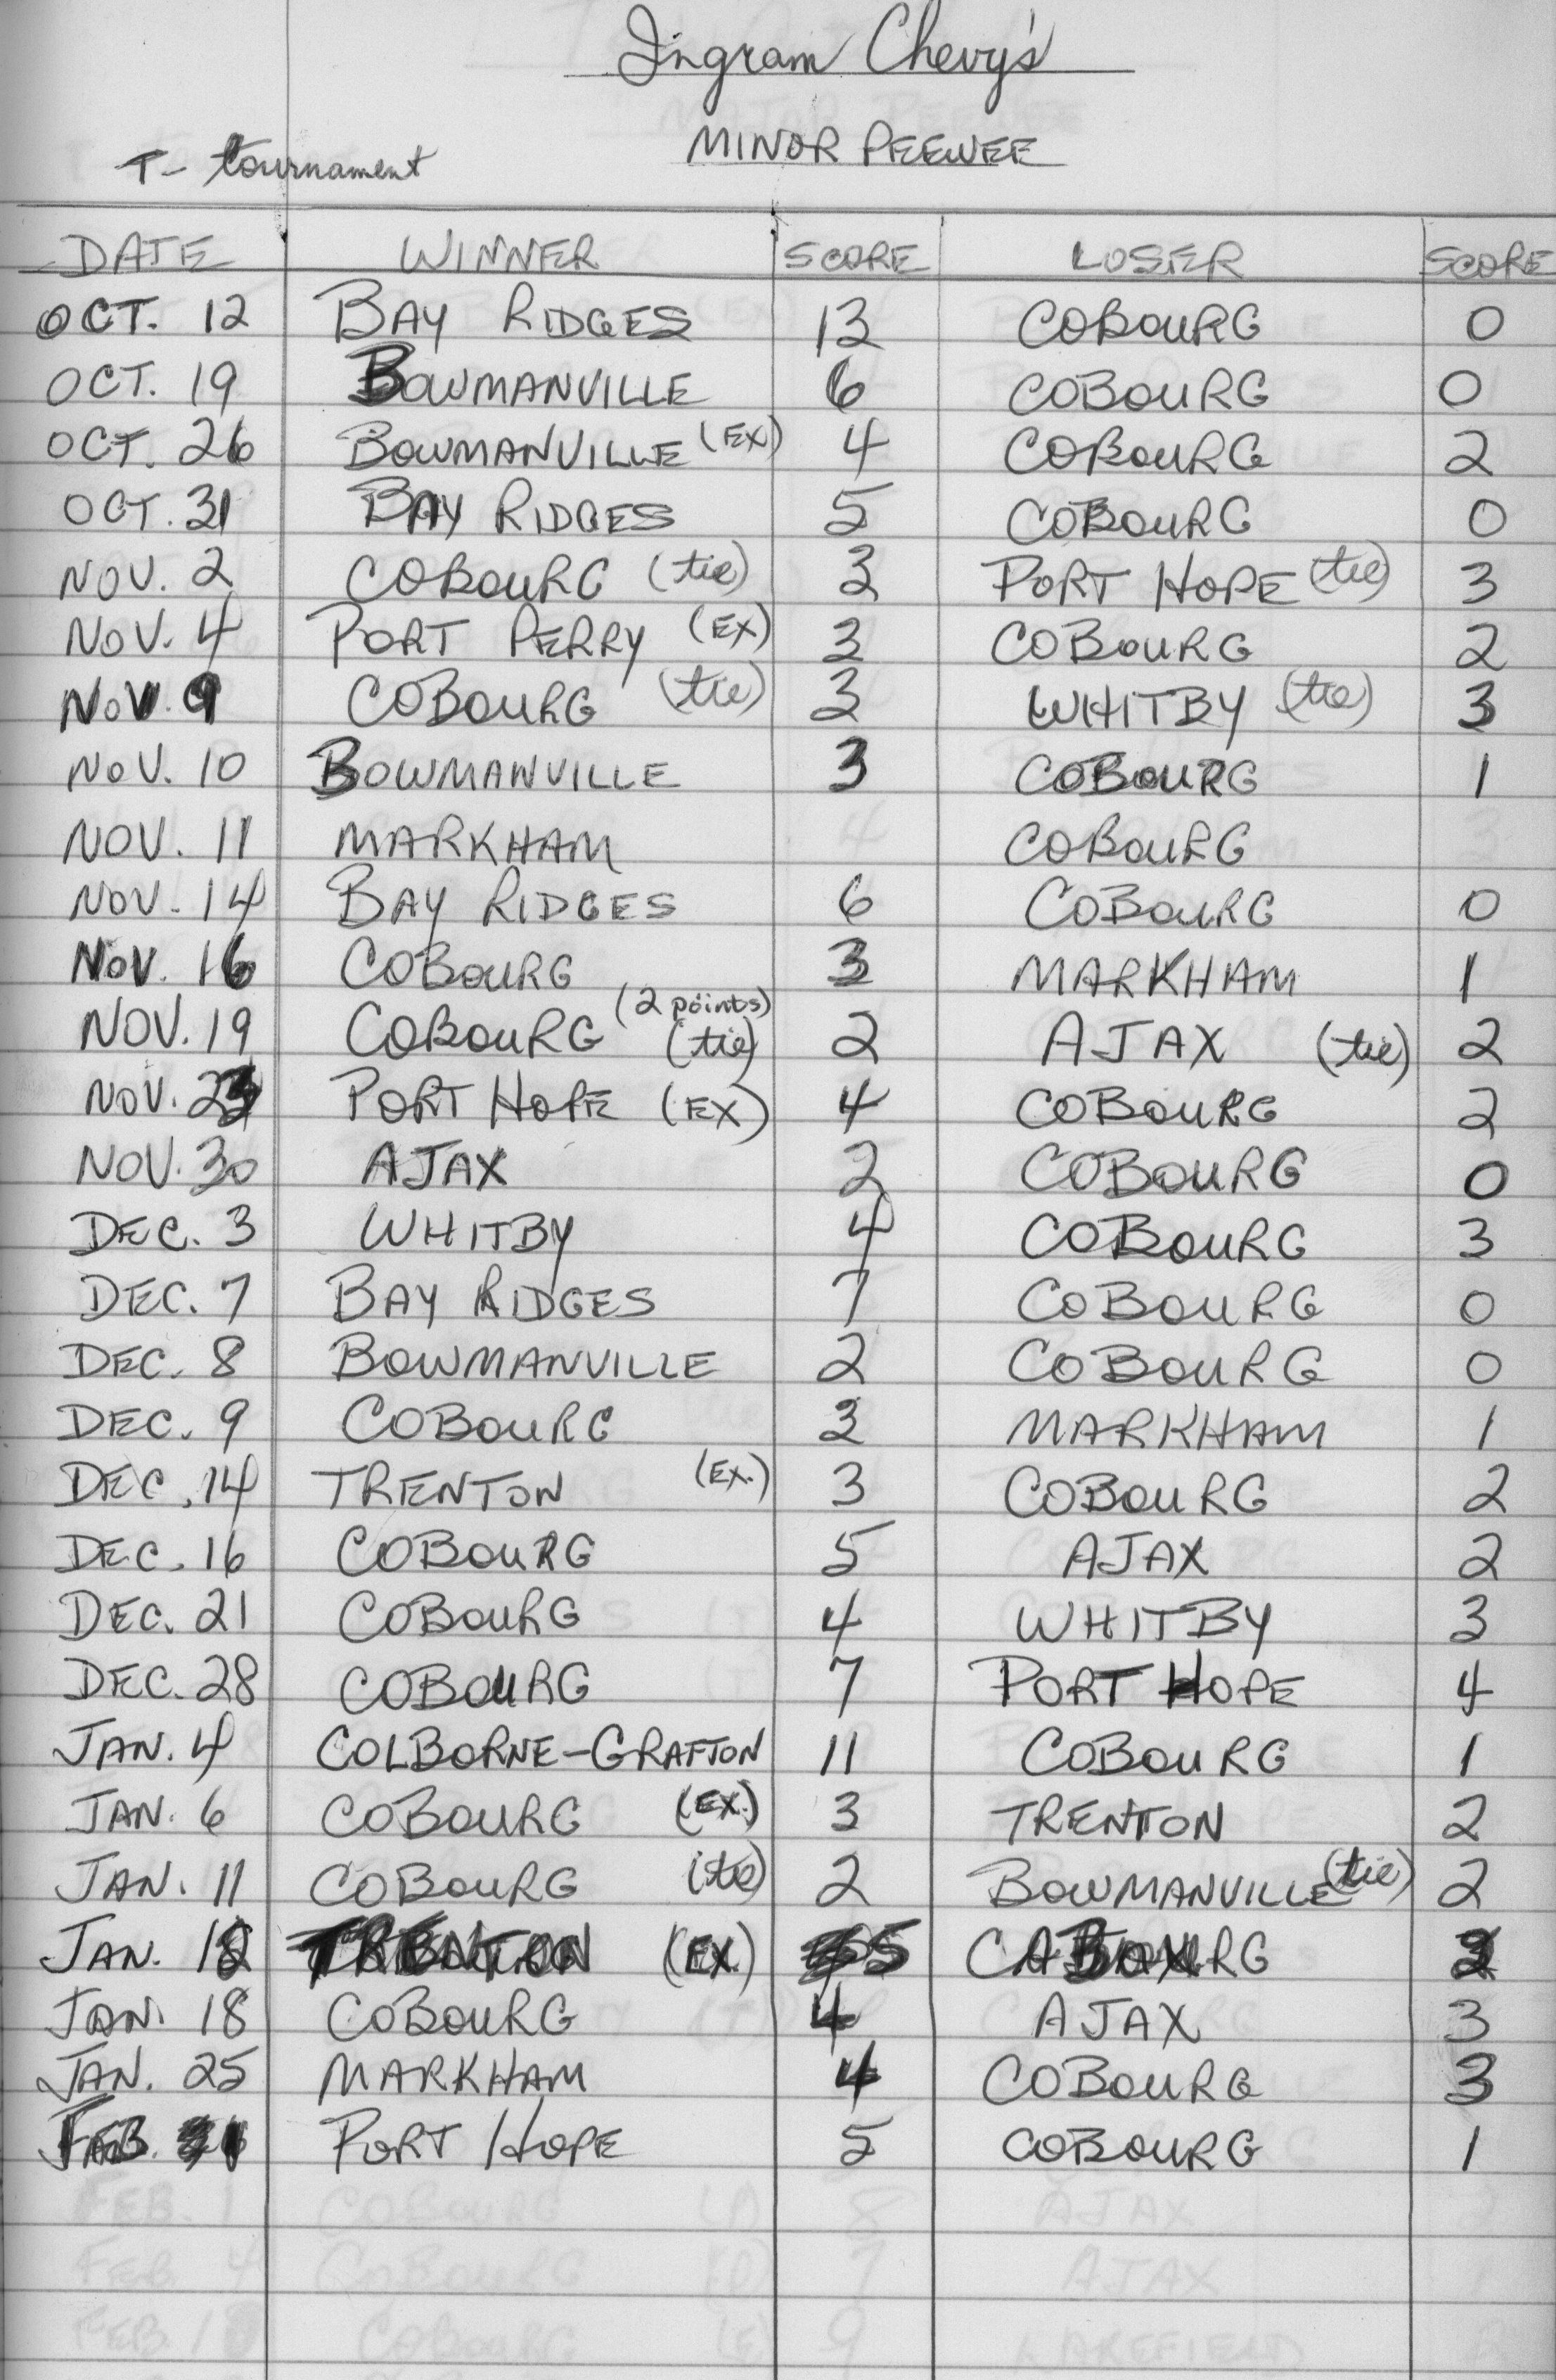 Ingram Chevy's
MINOR PEEWEE
T- tournament
DATE WINNER SCORE LOSER SCORE
OCT. 12 BAY RIDGES 13 COBOURG 0
OCT. 19 BOWMANVILLE 6 COBOURG 0
OCT. 26 BOWMANVILLE (EX) 4 COBOURG 2
OCT. 31 BAY RIDGES 5 COBOURG 0
NOV. 2 COBOURG (tie) 3 PORT HOPE (tie) 3
NOV. 4 PORT PERRY (EX) 3 COBOURG 2
NOV. 9 COBOURG (tie) 3 WHITBY (tie) 3
NOV. 10 BOWMANVILLE 3 COBOURG 1
NOV. 11 MARKHAM COBOURG
NOV. 14 BAY RIDGES 6 COBOURG 0
NOV. 16 COBOURG 3 MARKHAM 1
NOV. 19 COBOURG (2 points) (tie) 2 AJAX (tie) 2
NOV. 23 PORT HOPE (EX) 4 COBOURG 2
NOV. 30 AJAX 2 COBOURG 0
DEC. 3 WHITBY 4 COBOURG 3
DEC. 7 BAY RIDGES 7 COBOURG 0
DEC. 8 BOWMANVILLE 2 COBOURG 0
DEC. 9 COBOURG 3 MARKHAM 1
DEC. 14 TRENTON (EX.) 3 COBOURG 2
DEC. 16 COBOURG 5 AJAX 2
DEC. 21 COBOURG 4 WHITBY 3
DEC. 28 COBOURG 7 PORT HOPE 4
JAN. 4 COLBORNE-GRAFTON 11 COBOURG 1
JAN. 6 COBOURG (EX.) 3 TRENTON 2
JAN. 11 COBOURG (tie) 2 BOWMANVILLE (tie) 2
JAN. TRENTON (EX.) 5 COBOURG
JAN. 18 COBOURG 4 AJAX 3
JAN. 25 MARKHAM 4 COBOURG 3
FEB. 1 PORT HOPE 5 COBOURG 1